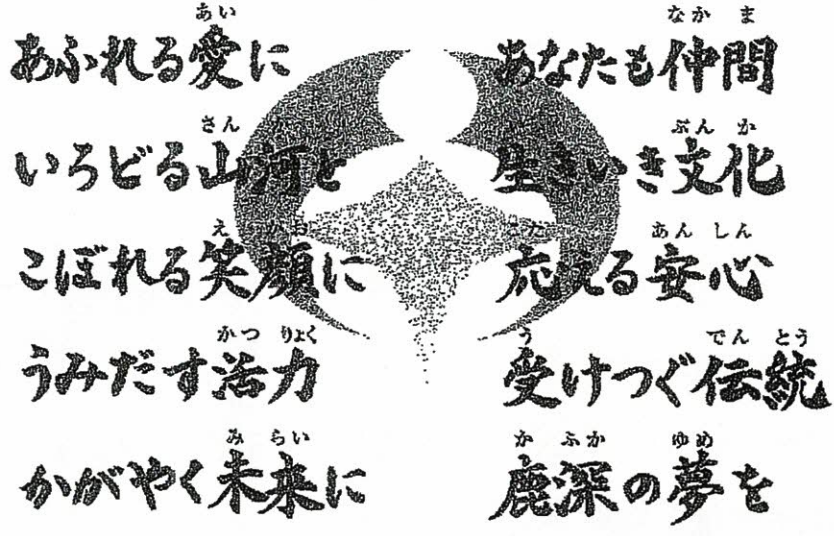 あふれる愛に あなたも仲間
いろどる山河と 生きいき文化
こぼれる笑顔に 応える安心
うみだす活力 受けつぐ伝統
かがやく未来に 鹿深の夢を